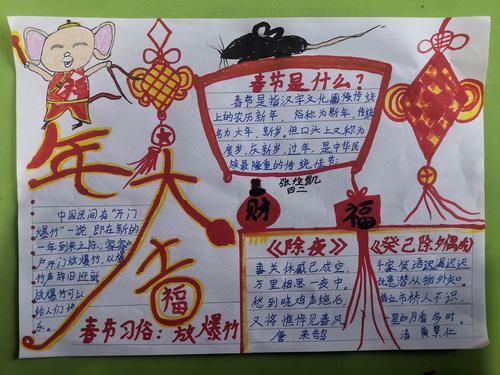 春节是什么?
春节是指汉字文化圈传统
上的农历新年,俗称为新年,传统
名为大年、新岁。但口头上又称为
度岁、庆新岁、过年,是中华民
族最隆重的传统佳节。
张
四二
年大吉
福
财
福
中国民间有“开门
爆竹”一说,即在新的
一年到来之际,家家户
户开门放爆竹,以爆
竹声辞旧迎新
放爆竹可以
给人们
乐。
春节习俗:放爆竹
《除夜》
事关休戚已成空,
万里相思一夜中。
愁到晓鸡声绝后,
又将憔悴见春风
唐 来鹄
《癸己除夕偶成》
千家笑语漏迟迟
忧患潜从物外知。
悄立市桥人不识,
一星如月看多时。
清 黄景仁